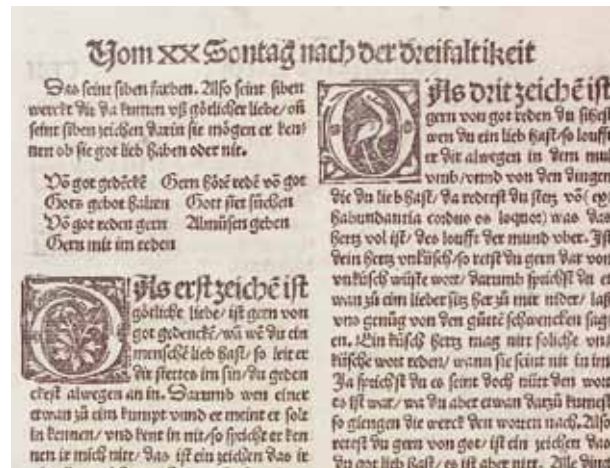 Vom XX Sontag nach der dreifaltikeit
Das seint siben farben. Also seint siben
werck die da kumen vß götlicher liebe/ vñ
seint siben zeichen darin sie mögen er ken/
nen ob sie got lieb haben oder nit.
Võ got gedẽckẽ Gern hörẽ redẽ võ got
Gots gebot halten Gott stet sůchen
Võ got reden gern Almůsen geben
Gern mit im reden
DAs erst zeichẽ ist
götliche liebe/ ist gern von
got gedenckẽ/ wã wẽ du ein
menschẽ lieb hast/ so leit er
dir stettes im sin/ du geden
ckest alwegen an in. Darumb wen einer
etwan zů eim kumpt vnnd er meint er sole
in kennen/ vnd kent in nit/ so spricht er ken
nen ir mich nitt/ das ist ein zeichen das ir
DAs drit zeichẽ ist
gern von got reden du sihest
wen du ein lieb hast/ so loufft
er dir alwegen in dem mun
vmb/ vnnd von den dingen
die du lieb hast/ da redest du stetz võ (ex
habundantia cordis os loquit) was das
hertz vol ist/ des loufft der mund vber. Ist
dein hertz vnküsch/ so retst du gern dar von
vnküsch wüste wort/ darumb sprichst du et
wan zů eim lieber sitz her zů mir nider/ laß
vns genůg von den gůttẽ schwencken sag
en. Ein küsch hertz mag nitt soliche vn/
küsche wort reden/ wann sie seint nit in im
Ja sprichst du es seint doch nütt den wort
es ist war/ wa du aber etwan darzů kumest
so giengen die werck den worten nach. Also
retest du gern von got/ ist ein zeichen das
du got lieb hast/ es ist aber nitt. Alle ding